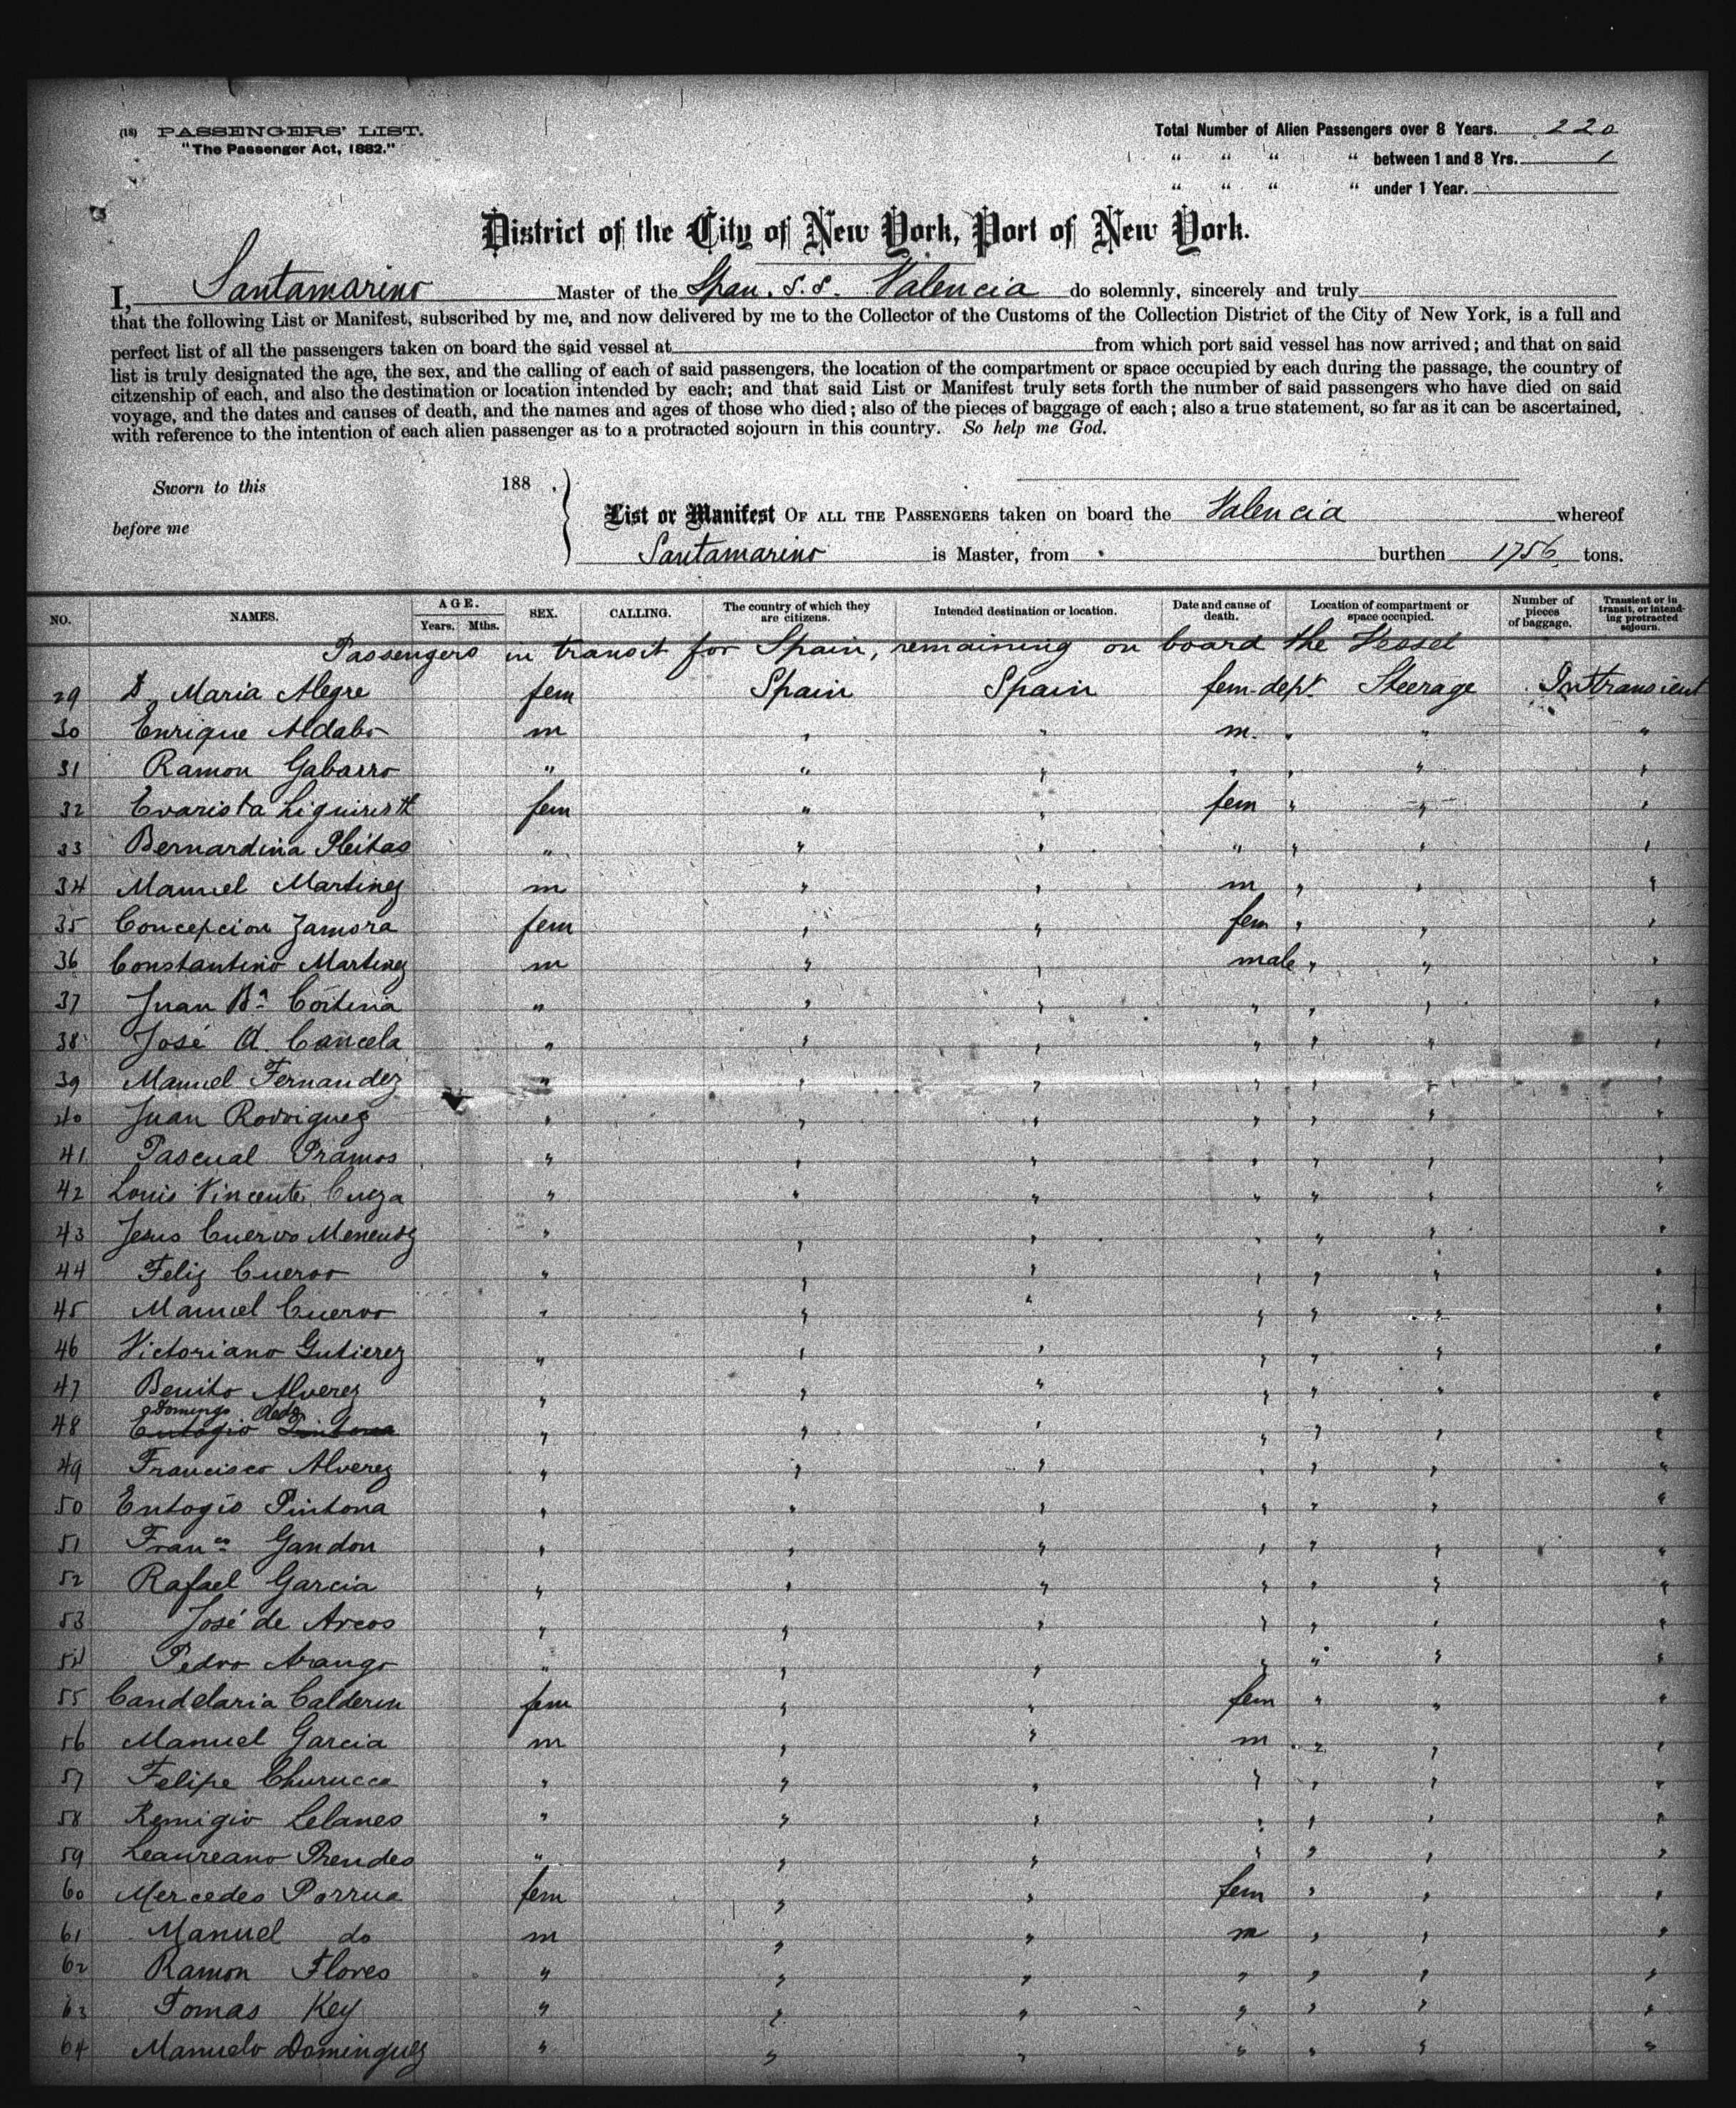 (18) PASSENGERS' LIST.
"The Passenger Act, 1882."
Total Number of Alien Passengers over 8 Years. 220
" " " " between 1 and 8 Yrs. 1
" " " " under 1 Year.
District of the City of New York, Port of New York.
I, Santamarino Master of the Span. S.S. Valencia do solemnly, sincerely and truly
that the following List or Manifest, subscribed by me, and now delivered by me to the Collector of the Customs of the Collection District of the City of New York, is a full and
perfect list of all the passengers taken on board the said vessel at from which port said vessel has now arrived; and that on said
list is truly designated the age, the sex, and the calling of each of said passengers, the location of the compartment or space occupied by each during the passage, the country of
citzenship of each, and also the destination or location intended by each; and that said List or Manifest truly sets forth the number of said passengers who have died on said
voyage, and the dates and causes of death, and the names and ages of those who died; also of the pieces of baggage of each; also a true statement, so far as it can be ascertained,
with reference to the intention of each alien passenger as to a protracted sojourn in this country. So help me God.
Sworn to this 188 .
before me
List or Manifest OF ALL THE PASSENGERS taken on board the Valencia whereof
Santamarino is Master, from burthen 1756 tons.
NO. NAMES. AGE. Years. Mths. SEX. CALLING. The country of which they are citizens. Intended destination or location. Date and cause of death. Location of compartment or space occupied. Number of pieces of baggage. Transient or in transit, or intending protracted sojourn.
Passengers in transit for Spain, remaining on board the Vessel
29 Maria Alegre fem Spain Spain fem dept Steerage In transient
30 Enrique Aldabo m " " m. " " "
31 Ramon Gabarro " " " " " " "
32 Evarista fem " " fem " " "
33 Bernardina Pleitas " " " " " " "
34 Manuel Martinez m " " m " " "
35 Concepcion Zamora fem " " fem " " "
36 Constantino Martinez m " " male " " "
37 Juan Bª Cortina " " " " " " "
38 José A Cancela " " " " " " "
39 Manuel Fernandez " " " " " " "
40 Juan Rodriguez " " " " " " "
41 Pascual Pramos " " " " " " "
42 Louis Vincente Cueza " " " " " " "
43 Jesus Cuervo Menendz " " " " " " "
44 Feliz Cuervo " " " " " " "
45 Manuel Cuervo " " " " " " "
46 Victoriano Gutierez " " " " " " "
47 Benito Alverez " " " " " " "
Domingo
48 Entogio Pintona " " " " " " "
49 Francisco Alverez " " " " " " "
50 Entogio Pintona " " " " " " "
51 Franco Gandon " " " " " " "
52 Rafael Garcia " " " " " " "
53 José de Arcos " " " " " " "
54 Pedro Arango " " " " " " "
55 Candelaria Calderin fem " " fem " " "
56 Manuel Garcia m " " m " " "
57 Felipe Churucca " " " " " " "
58 Remigio Lelanes " " " " " " "
59 Leaureano Prendes " " " " " " "
60 Mercedes Porrua fem " " fem " " "
61 Manuel do m " " m " " "
62 Ramon Flores " " " " " " "
63 Tomas Key " " " " " " "
64 Manuelo Dominguez " " " " " " "